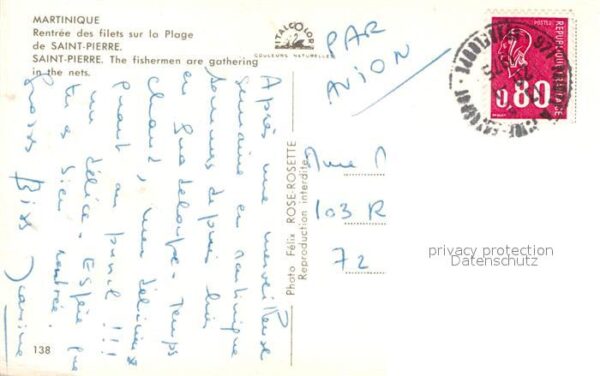 MARTINIQUE
Rentrée des filets sur la Plage
de SAINT-PIERRE.
SAINT-PIERRE. The fishermen are gathering
in the nets.
ITALCOLOR
COULEURS NATURELLES
PAR
AVION
REPUBLIQUE FRANCAISE
POSTES
0,80
Après une merveilleuse
semaine en Martinique
sommes depuis hier
en Guadeloupe - Temps
chaud, mer délicieuse
quant au punch !!!
un délice - Espère que
tu es bien rentrée.
Grosses Bises
Photo Félix ROSE-ROSETTE
Reproduction interdite
Mme
103 R
72
privacy protection
Datenschutz
138